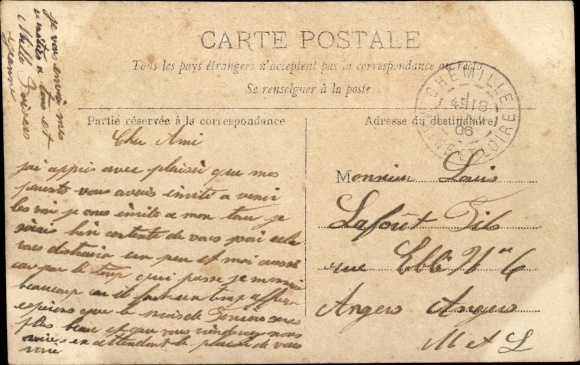 CARTE POSTALE
Tous les pays étrangers n'acceptent pas la correspondance au recto
Se renseigner à la poste
Partie réservée à la correspondance
Adresse du destinataire
CHEMILLE
18
06
LOIRE
Cher Ami
j'ai appris avec plaisir que mes
parents vous avais invité a venir
les voir je vous invite a mon tour je
serais bien contente de vous voir cela
vous distraira un peu et moi aussi
car par le temp qui passe je m'ennuie
beaucoup car il fait un temp affreux
espérons que le mois de sera
plus beau et que vous viendrez nous
voir en attendant le plaisir de vous
voir
Je vous envoie mes
amitiés a tous et
Mille Baisers
Jeanne
Monsieur Louis
Lafout Fils
rue Eblé N° 6
Angers Angers
M et L